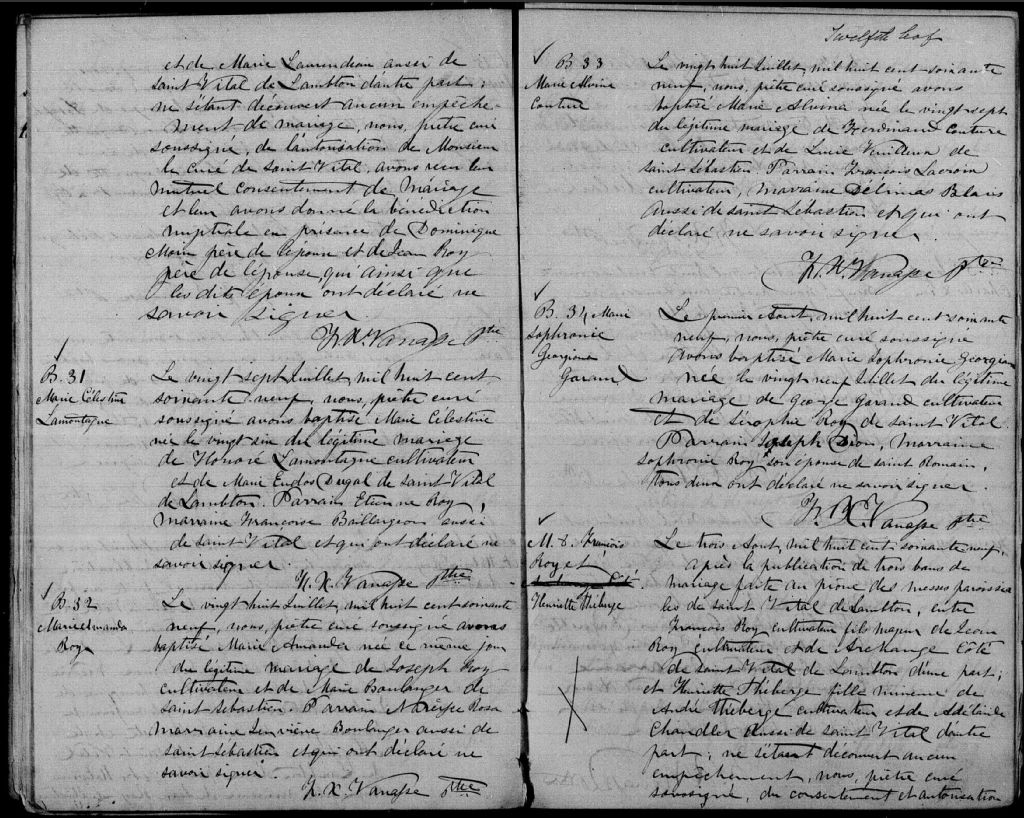 et de Marie Laurendeau aussi de
saint Vital de Lambton d'autre part ;
ne s'étant découvert aucun empêche-
ment de mariage, nous, prêtre curé
soussigné, de l'autorisation de Monsieur
le curé de saint Vital, avons reçu leur
mutuel consentement de mariage
et leur avons donné la bénédiction
nuptiale en présence de Dominique
père de l'époux et de Jean Roy
père de l'épouse, qui ainsi que
les dits époux ont déclaré ne
savoir signer.
F. X. Vanasse Ptre
B. 31
Marie Célestine
Lamontagne
Le vingt sept Juillet, mil huit cent
soixante neuf, nous, prêtre curé
soussigné avons baptisé Marie Célestine
née le vingt six du légitime mariage
de Honoré Lamontagne cultivateur
et de Marie Dugal de saint Vital
de Lambton. Parrain Etienne Roy,
marraine Françoise Baillargeon aussi
de saint Vital et qui ont déclaré ne
savoir signer.
F. X. Vanasse Ptre
B. 32
Marie Amanda
Roy
Le vingt huit Juillet, mil huit cent soixante
neuf, nous, prêtre curé soussigné avons
baptisé Marie Amanda née ce même jour
du légitime mariage de Joseph Roy
cultivateur et de Marie Boulanger de
saint Sébastien. Parrain Narcisse Rosa
marraine Boulanger aussi de
saint Sébastien et qui ont déclaré ne
savoir signer.
F. X. Vanasse Ptre
Twelfth leaf
B 33
Marie Alvina
Couture
Le vingt huit Juillet, mil huit cent soixante
neuf, nous, prêtre curé soussigné avons
baptisé Marie Alvina née le vingt sept
du légitime mariage de Ferdinand Couture
cultivateur et de Lucie Veilleux de
saint Sébastien. Parrain François Lacroix
cultivateur, marraine Délimas Blais
aussi de saint Sébastien et qui ont
déclaré ne savoir signer.
F. X. Vanasse Ptre
B. 34 Marie
Sophronie
Georgiana
Garand
Le premier Aout, mil huit cent soixante
neuf, nous, prêtre curé soussigné
avons baptisé Marie Sophronie Georgiana
née le vingt neuf Juillet du légitime
mariage de George Garand cultivateur
et de Séraphie Roy de saint Vital
Parrain Joseph Dion, marraine
Sophronie Roy son épouse de saint Romain,
tous deux ont déclaré ne savoir signer.
F. X. Vanasse Ptre
M. 8. François
Roy et
Henriette Théberge
Le trois Aout, mil huit cent soixante neuf,
après la publication de trois bans de
mariage faite au prône des messes paroissia
les de saint Vital de Lambton, entre
François Roy cultivateur fils majeur de Jean
Roy cultivateur et de Archange Côté
de saint Vital de Lambton d'une part;
et Henriette Théberge fille mineure de
André Théberge cultivateur et de Adélaïde
Chandler aussi de saint Vital d'autre
part; ne s'étant découvert aucun
empêchement, nous, prêtre curé
soussigné, du consentement et autorisation